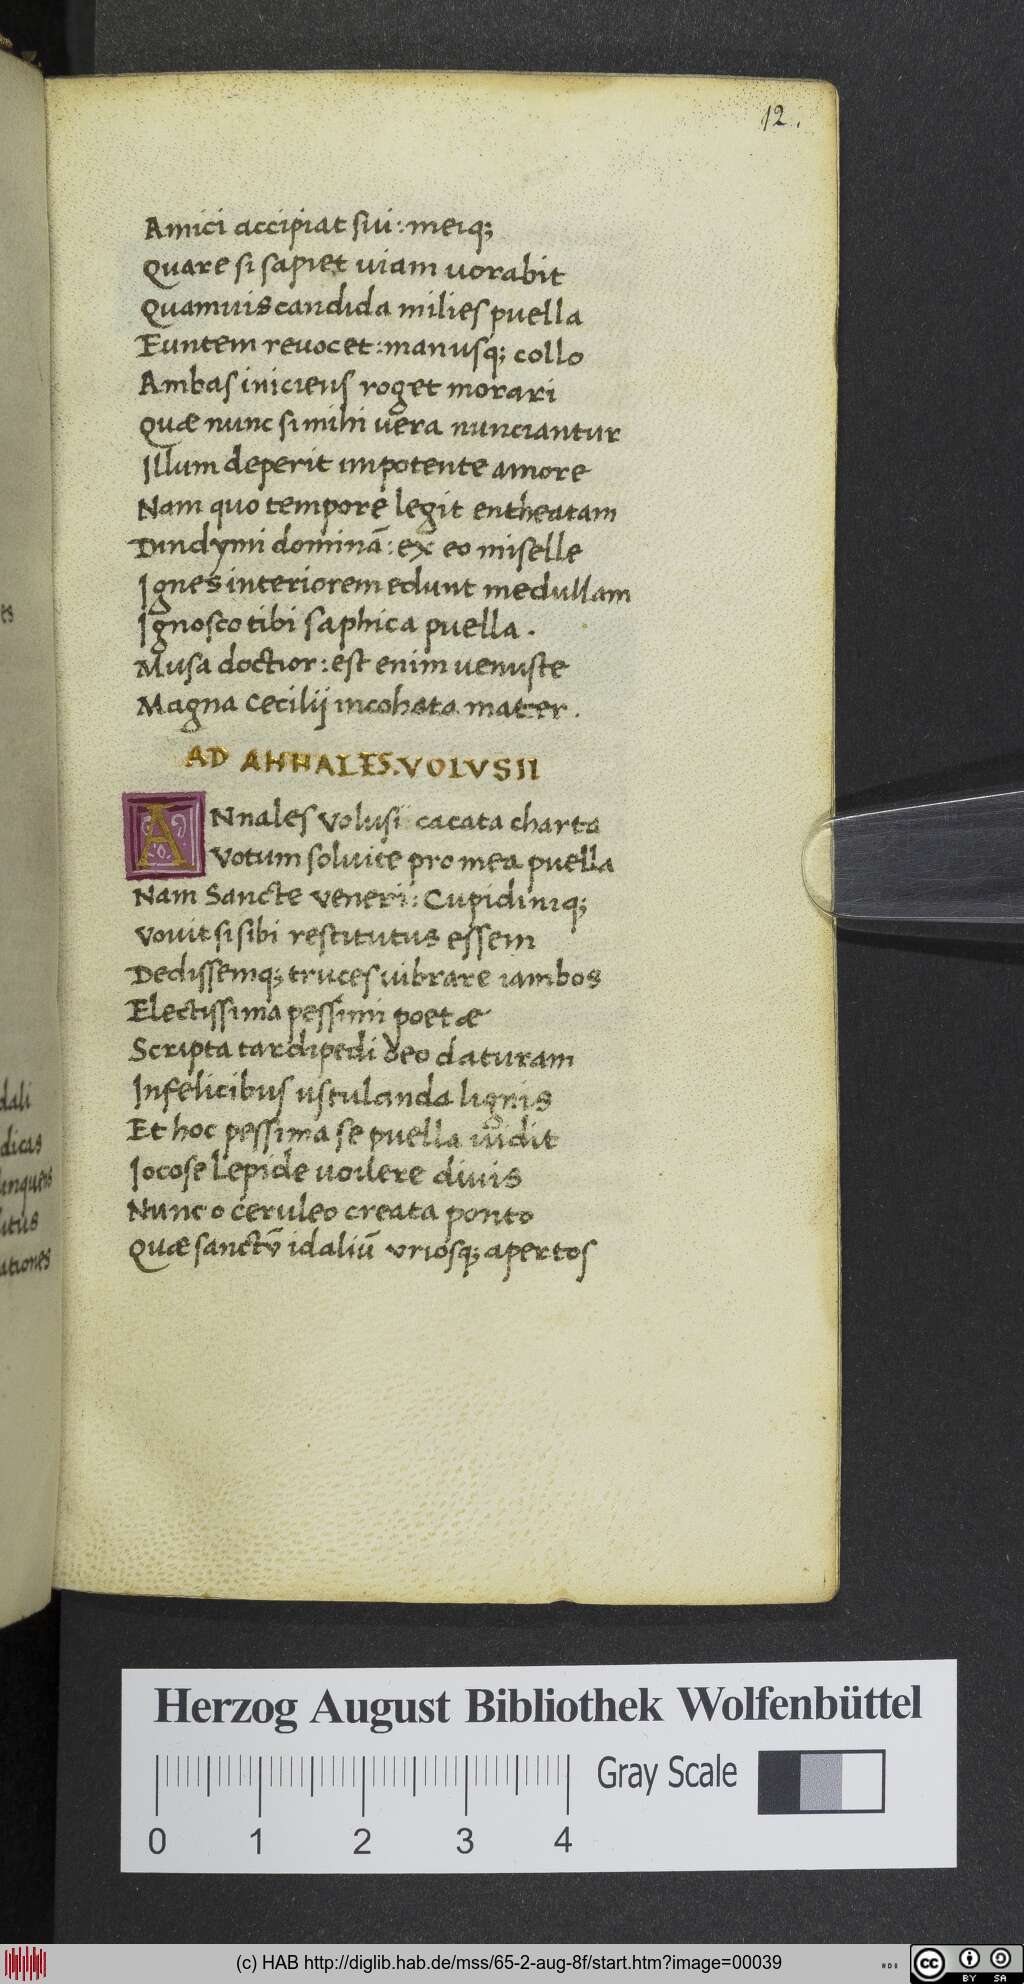 12.
Amici accipiat sui: meiq;
Quare si sapiet uiam uorabit
Quamuis candida milies puella
Euntem reuocet: manusq; collo
Ambas iniciens roget morari
Quæ nunc si mihi uera nunciantur
Illum deperit impotente amore
Nam quo tempore legit entheatam
Dindymi dominā: ex eo miselle
Ignes interiorem edunt medullam
Ignosco tibi saphica puella.
Musa doctior: est enim uenuste
Magna Cecilij incohata mater.
AD ANNALES. VOLVSII
ANnales Volusi cacata charta
Votum soluite pro mea puella
Nam Sancte Veneri: Cupidiniq;
Vouit si sibi restitutus essem
Dedissemq; truces uibrare iambos
Electissima pessimi poetæ
Scripta tardipedi deo daturam
Infelicibus ustulanda lignis
Et hoc pessima se puella uidit
Iocose Lepide uouere diuis
Nunc o ceruleo creata ponto
Quæ sanctū idaliū uriosq; apertos
es
dali
dicas
linquens
litus
ationes
Herzog August Bibliothek Wolfenbüttel
Gray Scale
0 1 2 3 4
(c) HAB http://diglib.hab.de/mss/65-2-aug-8f/start.htm?image=00039
cc BY SA